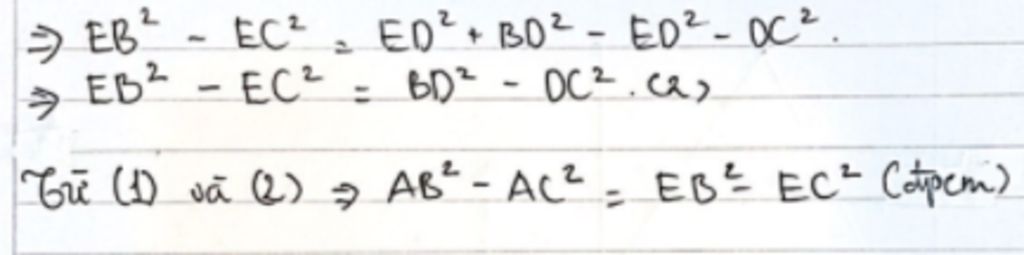 ⇒ EB² - EC² = ED² + BD² - ED² - DC².
⇒ EB² - EC² = BD² - DC². (2)
Từ (1) và (2) ⇒ AB² - AC² = EB² - EC² (đpcm)